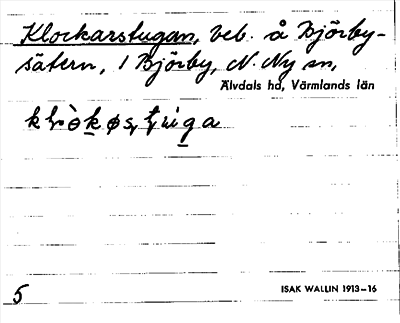 Klockarstugan, beb. å Björby-
sätern, 1 Björby, N. Ny sn,
Älvdals hd, Värmlands län
5
ISAK WALLIN 1913–16